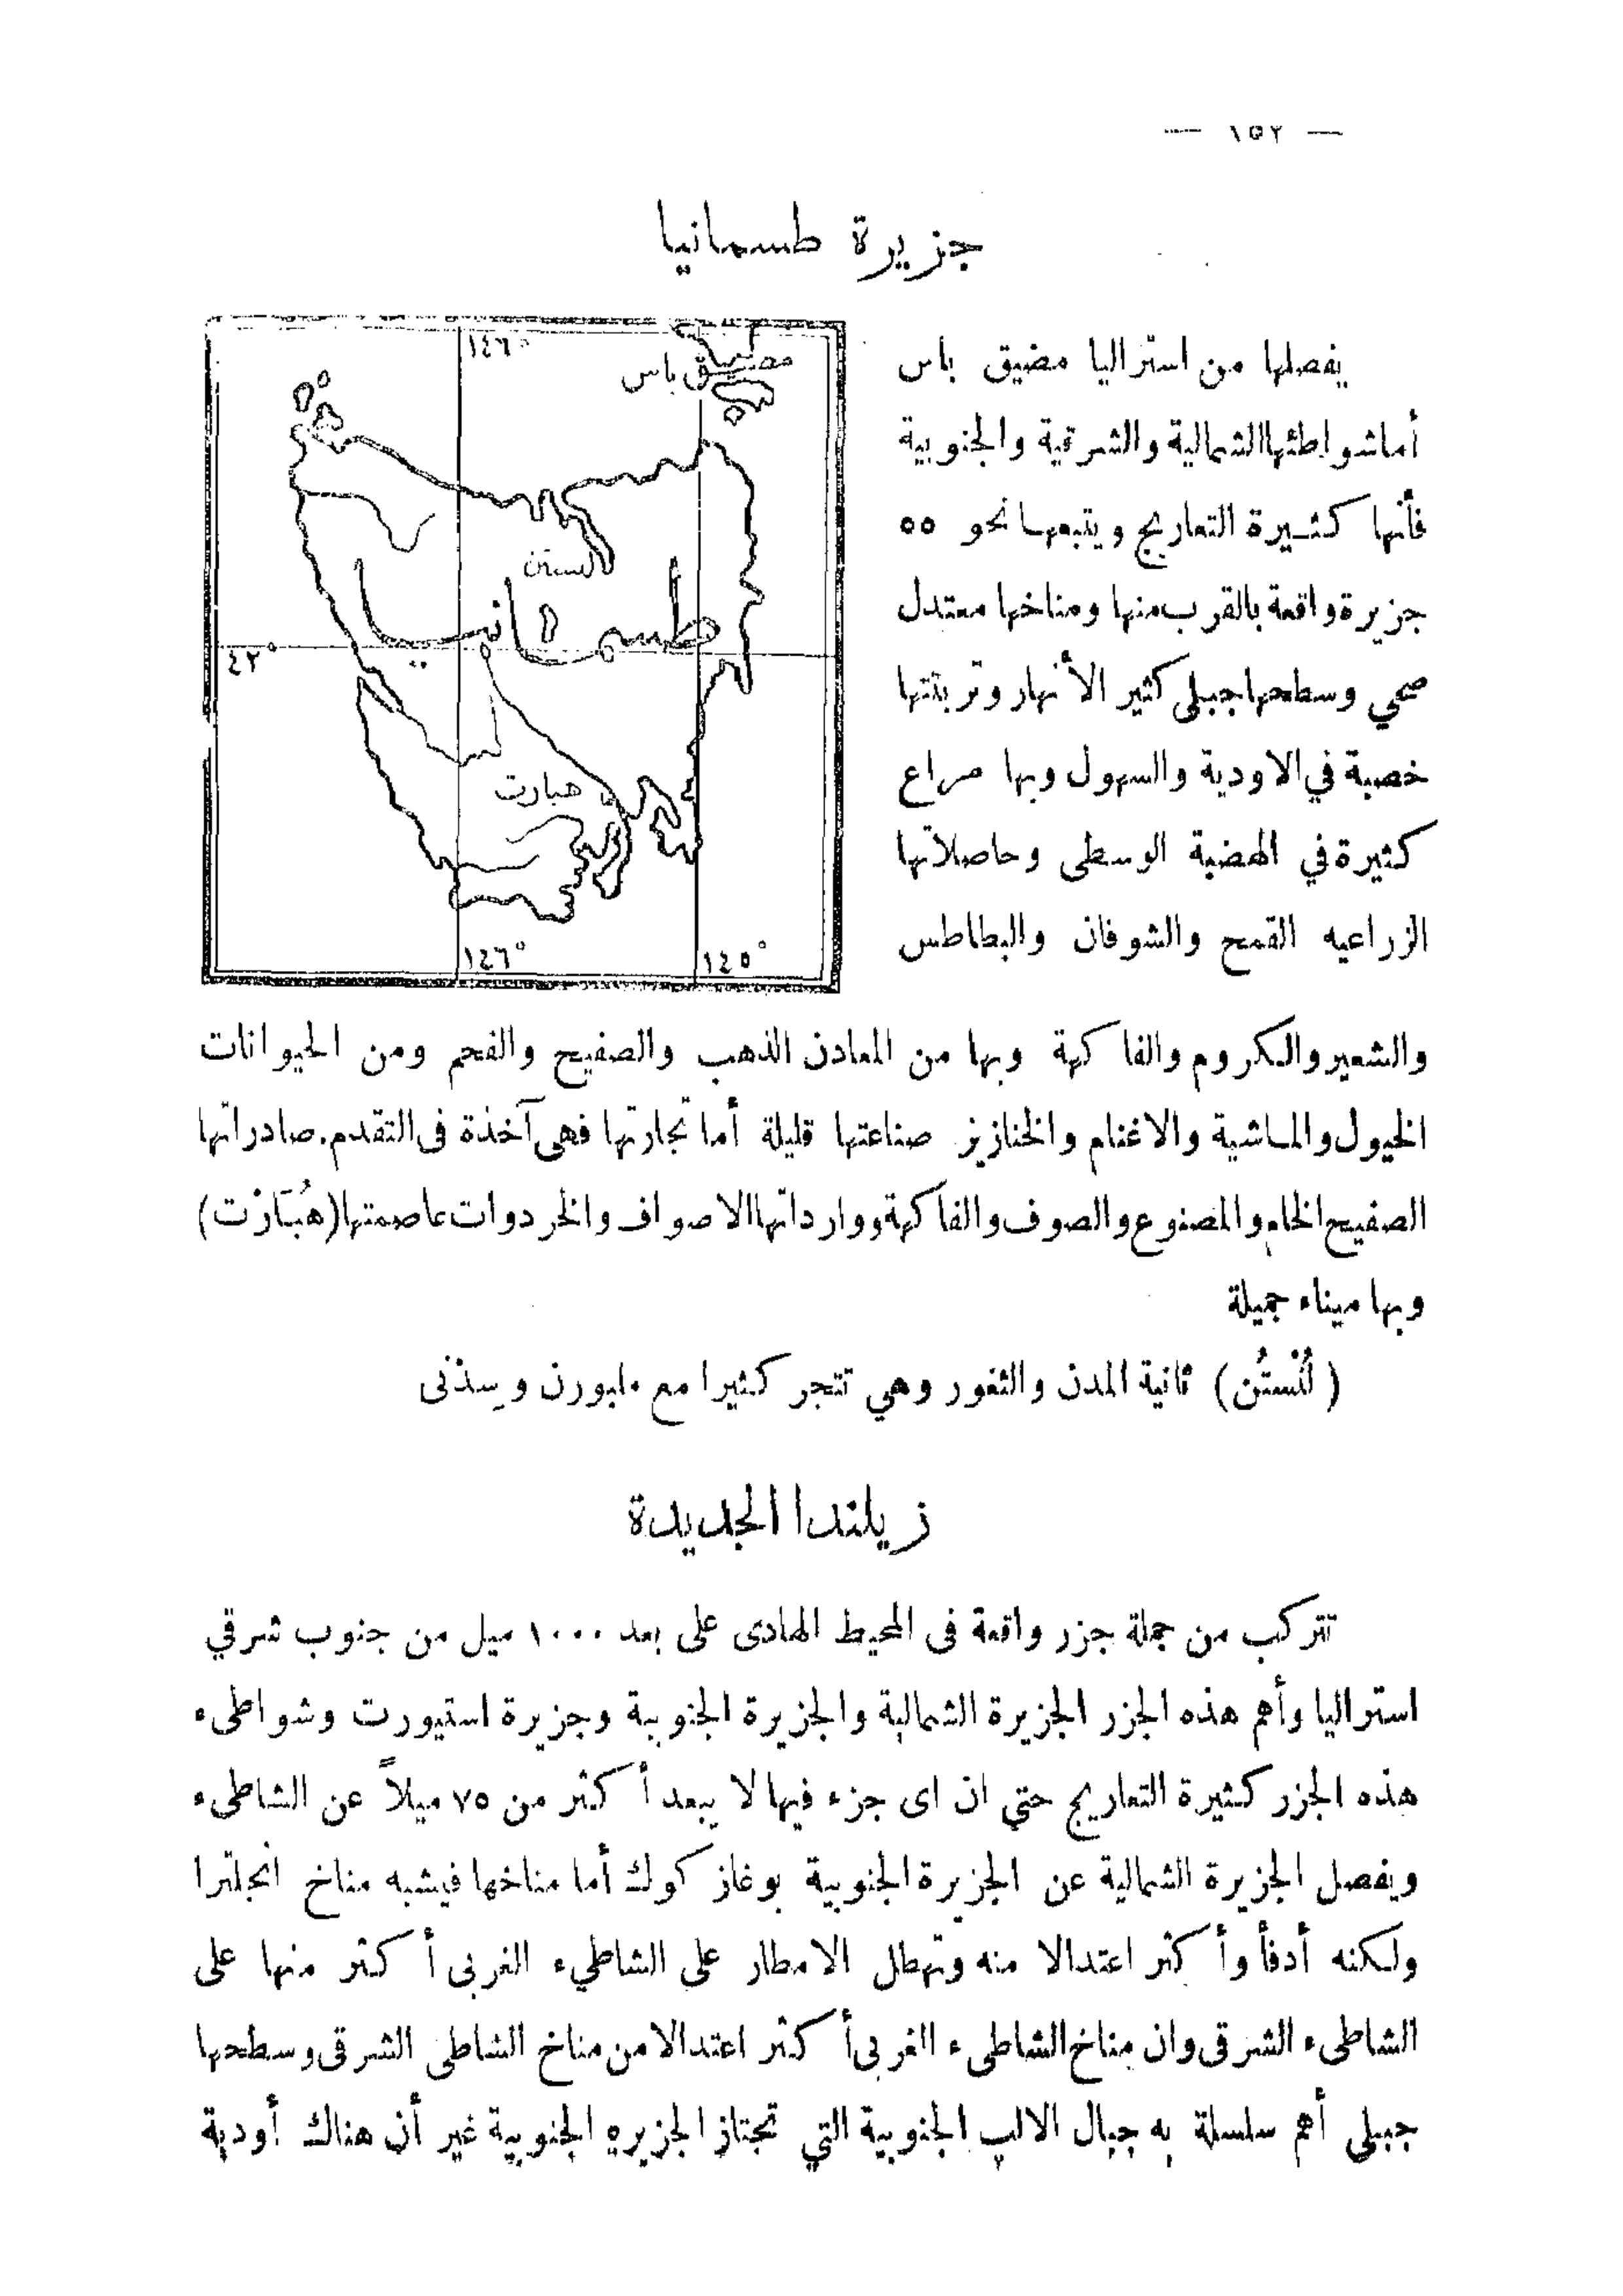 — ١٥٢ —
جزيرة طسمانيا
يفصلها من استراليا مضيق باس
أما شواطئها الشمالية والشرقية والجنوبية
فأنها كثيرة التعاريج ويتبعها نحو ٥٥
جزيرة واقعة بالقرب منها ومناخها معتدل
صحي وسطحها جبلي كثير الأنهار وتربتتها
خصبة في الاودية والسهول وبها مراع
كثيرة في الهضبة الوسطى وحاصلاتها
الزراعيه القمح والشوفان والبطاطس
١٤٦°
مضيق باس
لنستن
طسمانيا
٤٢°
هبارت
١٤٦°
١٤٥°
والشعير والكروم والفاكهة وبها من المعادن الذهب والصفيح والفحم ومن الحيوانات
الخيول والماشية والاغنام والخنازيز صناعتها قليلة أما تجارتها فهى آخذة فى التقدم. صادراتها
الصفيح الخام والمصنوع والصوف والفاكهة ووارداتها الاصواف والخردوات عاصمتها (هُبَارْت)
وبها ميناء جميلة
(لُنْستُن) ثانية المدن والثغور وهي تتجر كثيرا مع ملبورن وسِدْنى
زيلندا الجديدة
تتركب من جملة جزر واقعة فى المحيط الهادى على بعد ١٠٠٠ ميل من جنوب شرقي
استراليا وأهم هذه الجزر الجزيرة الشمالية والجزيرة الجنوبية وجزيرة استيورت وشواطىء
هذه الجزر كثيرة التعاريج حتي ان اى جزء فيها لا يبعد أكثر من ٧٥ ميلاً عن الشاطىء
ويفصل الجزيرة الشمالية عن الجزيرة الجنوبية بوغاز كوك أما مناخها فيشبه مناخ انجلترا
ولكنه أدفأ وأكثر اعتدالا منه وتهطل الامطار على الشاطيء الغربى أكثر منها على
الشاطىء الشرقى وان مناخ الشاطىء الغربى أكثر اعتدالا من مناخ الشاطى الشرقى وسطحها
جبلى أهم سلسلة به جبال الالب الجنوبية التي تجتاز الجزيره الجنوبية غير أن هناك أودية